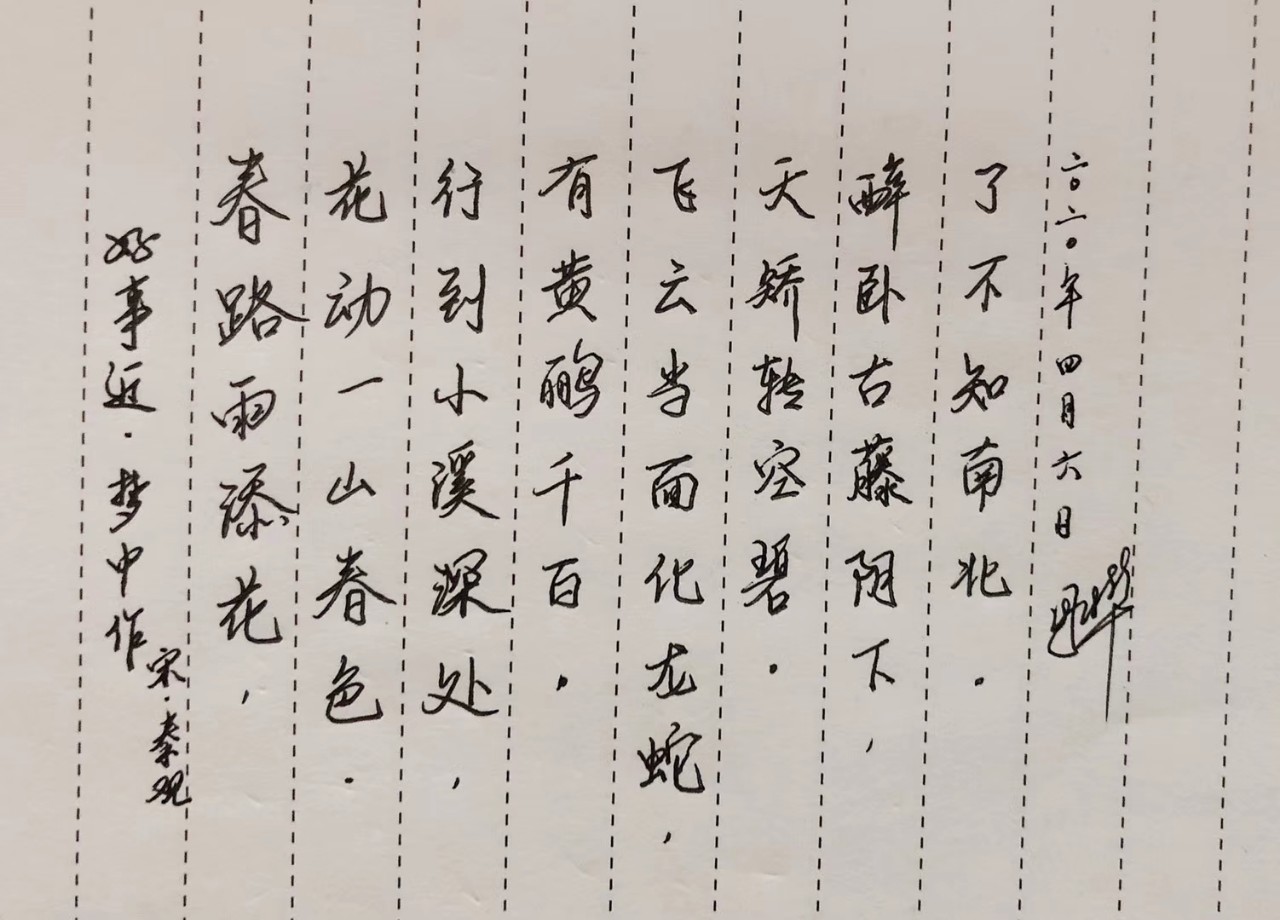 好事近·梦中作
宋·秦观
春路雨添花，
花动一山春色.
行到小溪深处，
有黄鹂千百.
飞云当面化龙蛇，
夭矫转空碧.
醉卧古藤阴下，
了不知南北.
二〇二〇年四月六日